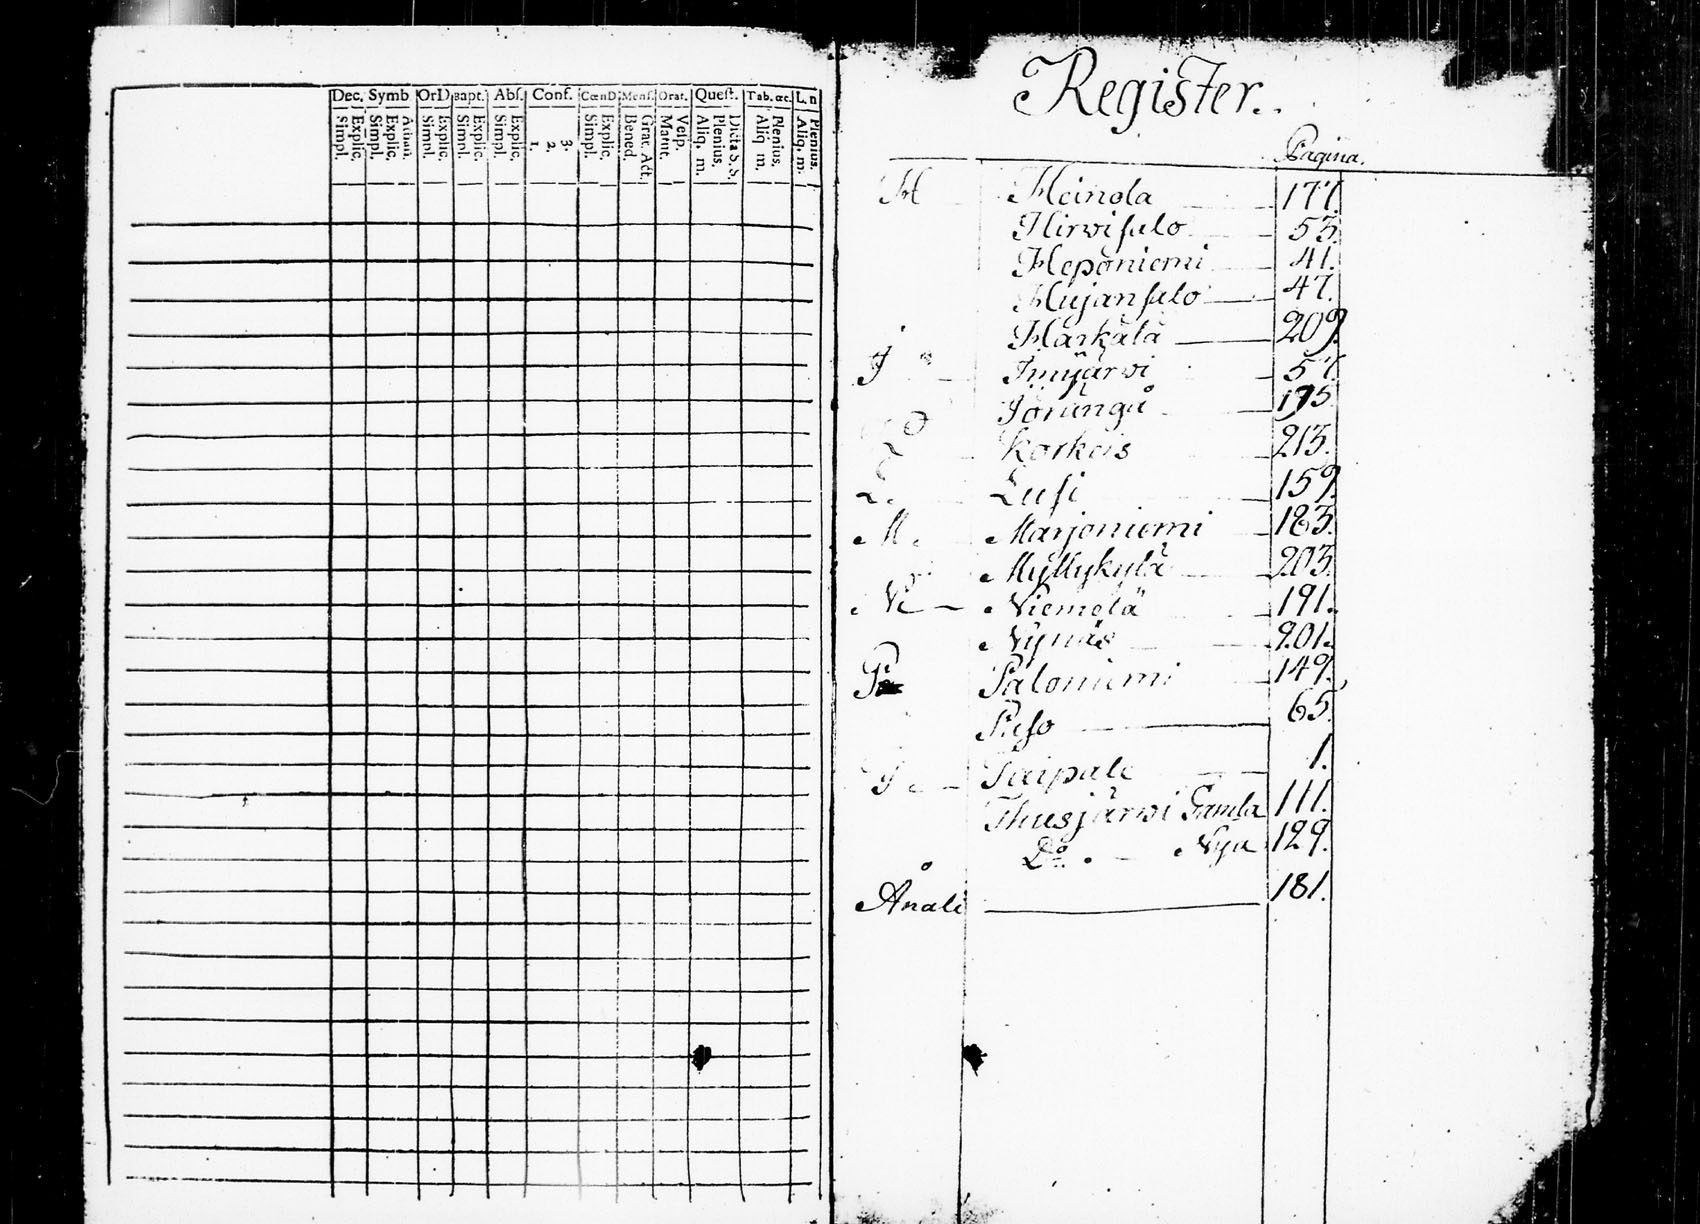 Dec. Symb OrD Bapt. Abs. Conf. CœnD Mens. Orat. Quest. Tab. œc. L. n
Simpl. Explic. Simpl. Explic. Athan. Simpl. Explic. Simpl. Explic. Simpl. Explic. 1. 2. 3. Simpl. Explic. Bened. Grat. Act. Matut. Vesp. Aliq. m. Plenius. Dicta S. S. Aliq m. Plenius. Aliq. m. Plenius.
Register.
Pagina.
H Heinola 177.
Hirvisalo 53.
Heponiemi 41.
Hujansalo 47.
Härkälä 209.
J Imijärvi 57.
Joränga 175.
Korkeis 213.
L. Lusi 159.
M. Marjoniemi 183.
Myllykylä 203.
N Niemelä 191.
Nynäs 201.
P Paloniemi 149.
Puso 65.
T Taipale 1.
Thusjärwi Gamla 111.
Do. Nya 129.
Ånali 181.